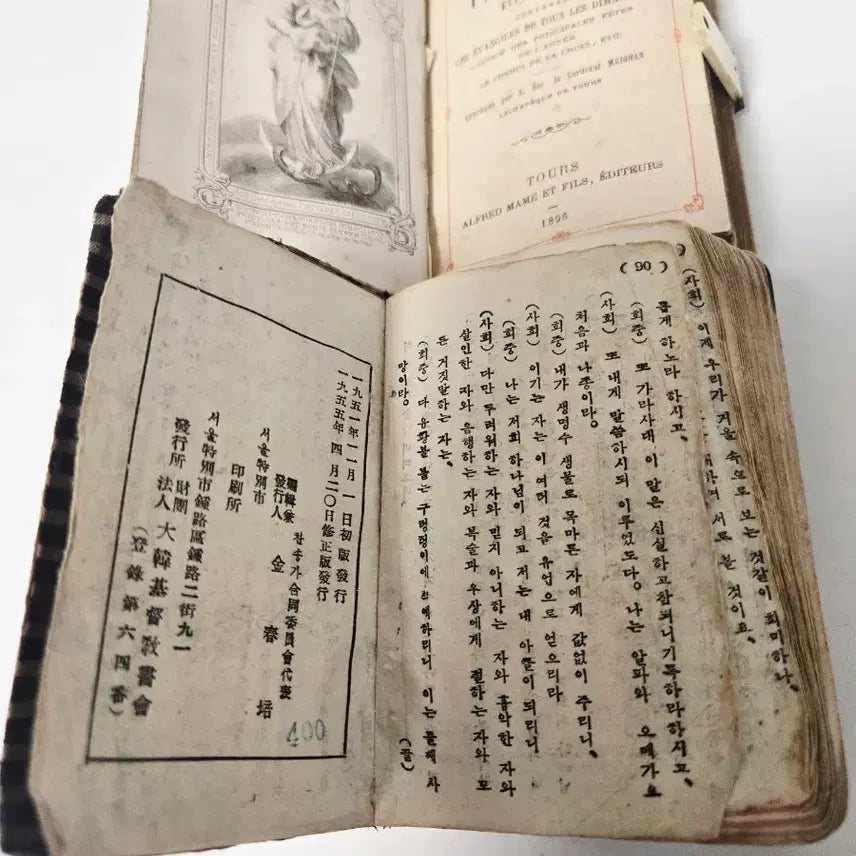 LES ÉVANGILES DE TOUS LES
DES PRINCIPALES FÊTES
DE L'ANNÉE
LE CHEMIN DE LA CROIX, ETC.
le Cardinal MEIGNAN
ARCHEVÊQUE DE TOURS
TOURS
ALFRED MAME ET FILS, ÉDITEURS
1896
( 90 )
(사회) 이제 우리가 거울 속으로 보는 것같이 희미하나,
대하여 서로 볼 것이요,
하노라 하시고,
(회중) 또 가라사대 이 말은 신실하고 참되니 기록하라 하시고,
(사회) 또 내게 말씀하시되 이루었도다, 나는 알파와 오메가요
처음과 나중이라,
(회중) 내가 생명수 샘물로 목마른 자에게 값없이 주리니,
(사회) 이기는 자는 이 여러 것을 유업으로 얻으리라
(회중) 나는 저희 하나님이 되고 저는 내 아들이 되리니
(사회) 다만 두려워하는 자와 믿지 아니하는 자와 흉악한 자와
살인한 자와 음행하는 자와 복술과 우상에게 절하는 자와 모
든 거짓말하는 자는,
(회중) 다 유황불 붙는 구멍텅이에 하리니 이는 둘째 사
망이라, (끝)
一九五一年一一月 一日初版發行
一九五五年 四月二〇日修正版發行
編輯兼
發行人 찬송가合同委員會代表
金春培
서울特別市
印刷所
서울特別市鍾路區鍾路二街九一
發行所 財團
法人 大韓基督敎書會
(登錄第六四番)
400